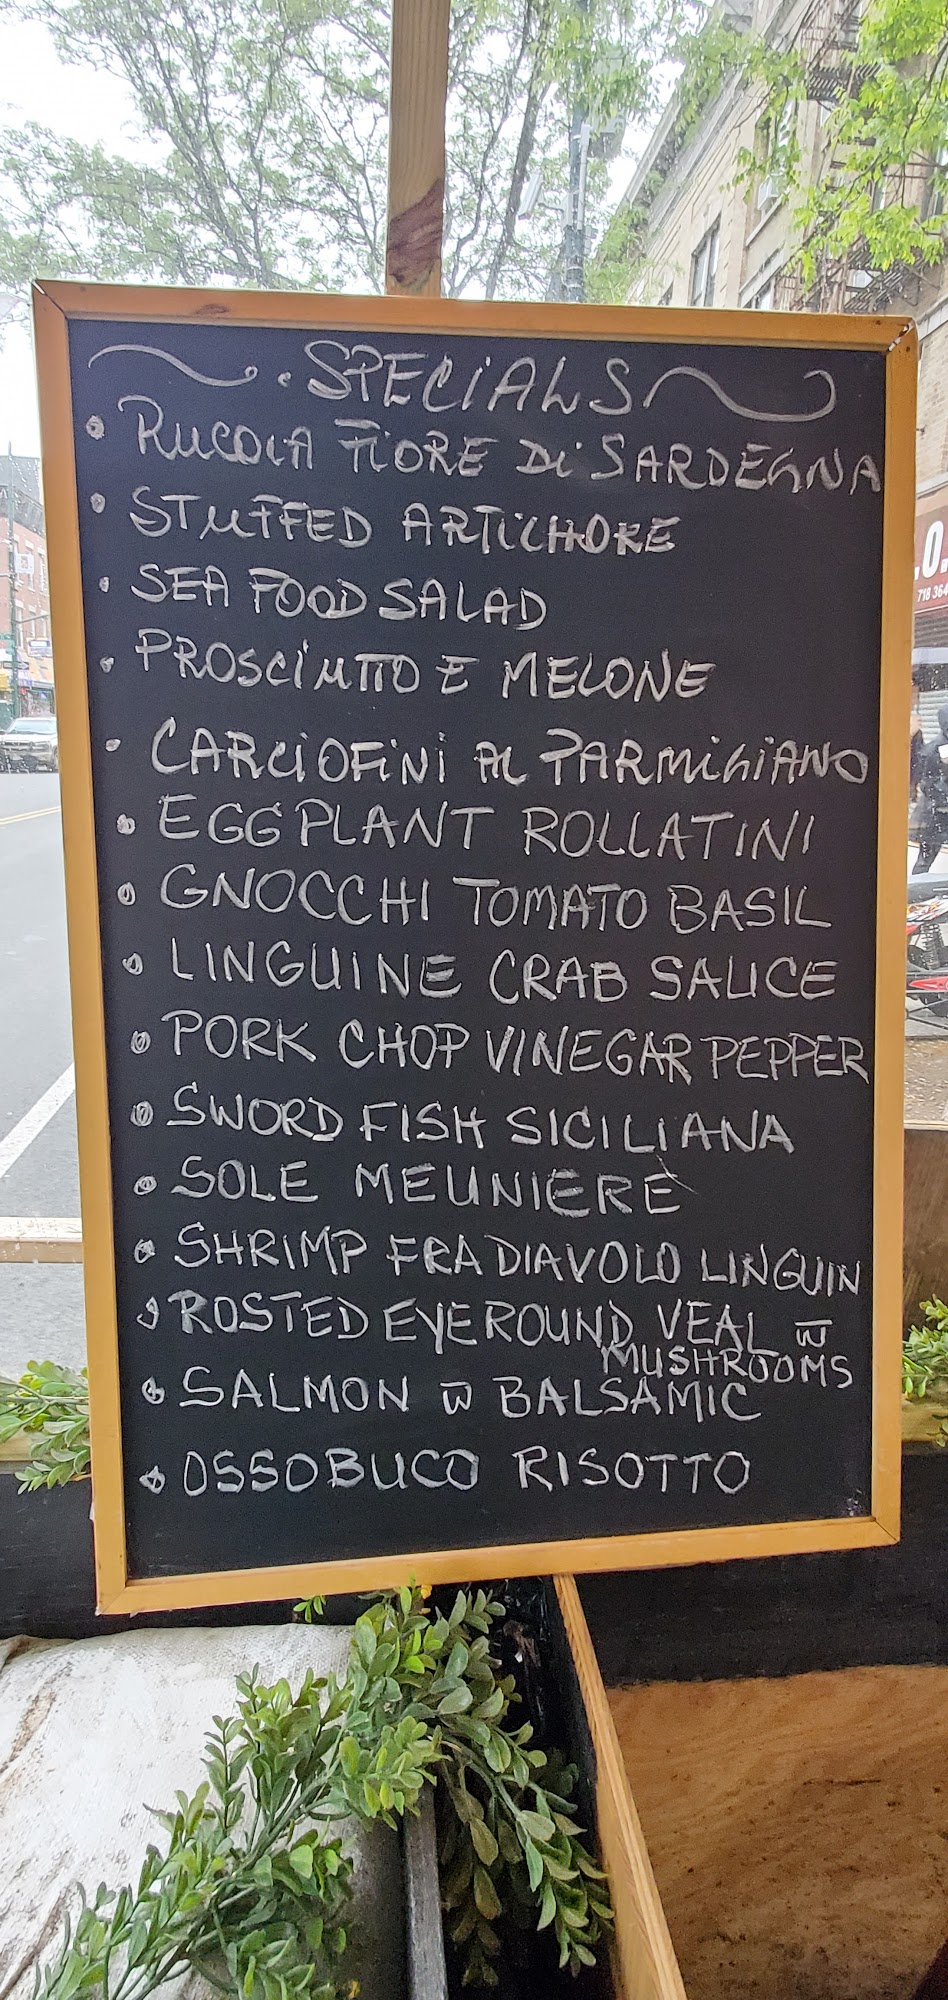 SPECIALS
RUCOLA FIORE Di SARDEGNA
STUFFED ARTICHOKE
SEA FOOD SALAD
PROSCIUTTO E MELONE
CARCIOFINI AL PARMIGIANO
EGGPLANT ROLLATINI
GNOCCHI TOMATO BASIL
LINGUINE CRAB SAUCE
PORK CHOP VINEGAR PEPPER
SWORD FISH SICILIANA
SOLE MEUNIERÈ
SHRIMP FRA DIAVOLO LINGUIN
ROSTED EYEROUND VEAL w̅
MUSHROOMS
SALMON w̅ BALSAMIC
OSSOBUCO RISOTTO
.O.
718 364